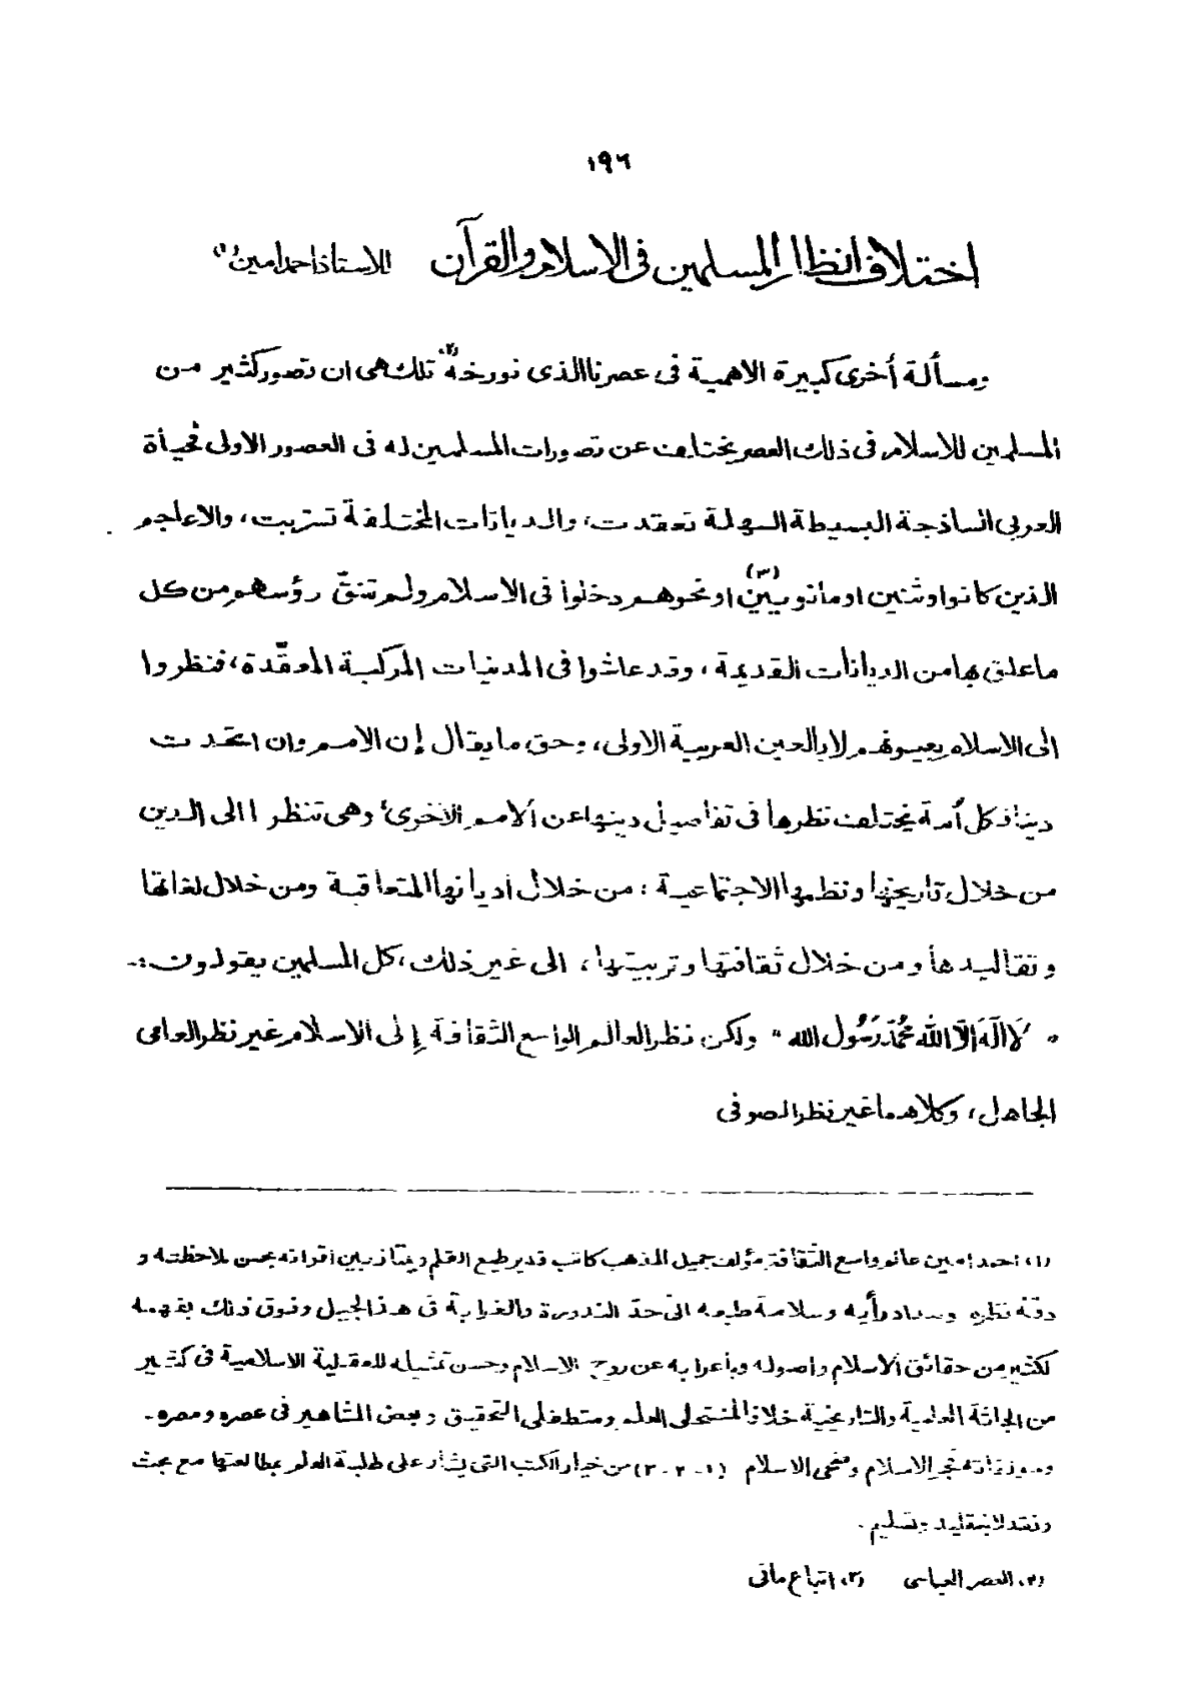 ١٩٦
اختلاف انظار المسلمين في الاسلام والقرآن للاستاذ احمد امين (١)
ومسألة أخرى كبيرة الاهمية في عصرنا الذى نورخه (٢) تلك هى ان تصور كثير من
المسلمين للاسلام فى ذلك العصر يختلف عن تصورات المسلمين له فى العصور الاولى فحيأة
العربى الساذجة البسيطة السهلة تعقدت، والديانات المختلفة تسربت، والاعاجم
الذين كانوا وثنين او مانويين (٣) او نحوهم دخلوا فى الاسلام ولم تنقّ رؤسهم من كل
ما علق بها من الديانات القديمة، وقد عاشوا فى المدنيات المركبة المعقّدة، فنظروا
الى الاسلام بعيونهم لا بالعين العربية الاولى، وحق ما يقال إن الامم وان اعتقدت
دينا فكل أمة يختلف نظرها فى تفاصيل دينها عن ألامم الأخرى، وهى تنظر االى الدين
من خلال تاريخها ونظمها الاجتماعية: من خلال أديانها المتعاقبة ومن خلال لغاتها
وتقاليدها ومن خلال ثقافتها وتربيتها، الى غير ذلك، كل المسلمين يقولون :-
" لَا اِلٰهَ اِلَّا اللهُ مُحَمَّدٌ رَسُولُ الله " ولكن نظر العالم الواسع الثقافة إلى الاسلام غير نظر العامى
الجاهل، وكلاهما غير نظر الصوفى
(١) احمد امين عالم واسع الثقافة مؤلف جميل المذهب كاتب قدير طيع القلم ويمتاز بين أقرانه بحسن ملاحظته و
دقة نظره وسداد رأيه وسلامة طبعه الى حدّ الندورة والغرابة فى هذا الجيل وفوق ذلك بفهمه
لكثير من حقائق ألاسلام واصوله وبأعرابه عن روح الاسلام وحسن تمثيله للعقلية الاسلامية فى كثير
من المباحث العلمية والتاريخية خلاف المنتحلى العلم ومتطفلى التحقيق وبعض المشاهير فى عصره ومصره -
ومؤلفاته فجر الاسلام وضحى الاسلام (١-٢-٣) من خيار الكتب التى يشار على طلبة العلم بمطالعتها مع بحث
ونقد لا بتقليد وتسليم -
(٢) العصر العباسى (٣) اتباع مانى